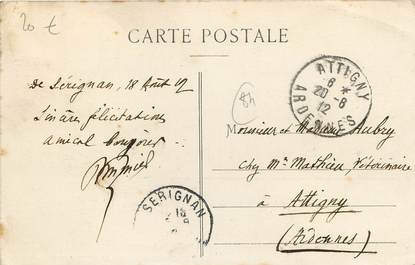 20 €
CARTE POSTALE
de Sérignan, 18 Août 12
Sincères félicitations
amical bonjour
8h
Monsieur et Madame Aubry
chez Mr Mathieu Vétérinaire
à Attigny
(Ardennes)
ATTIGNY
6 *
20 -8
12
ARDENNES
SERIGNAN